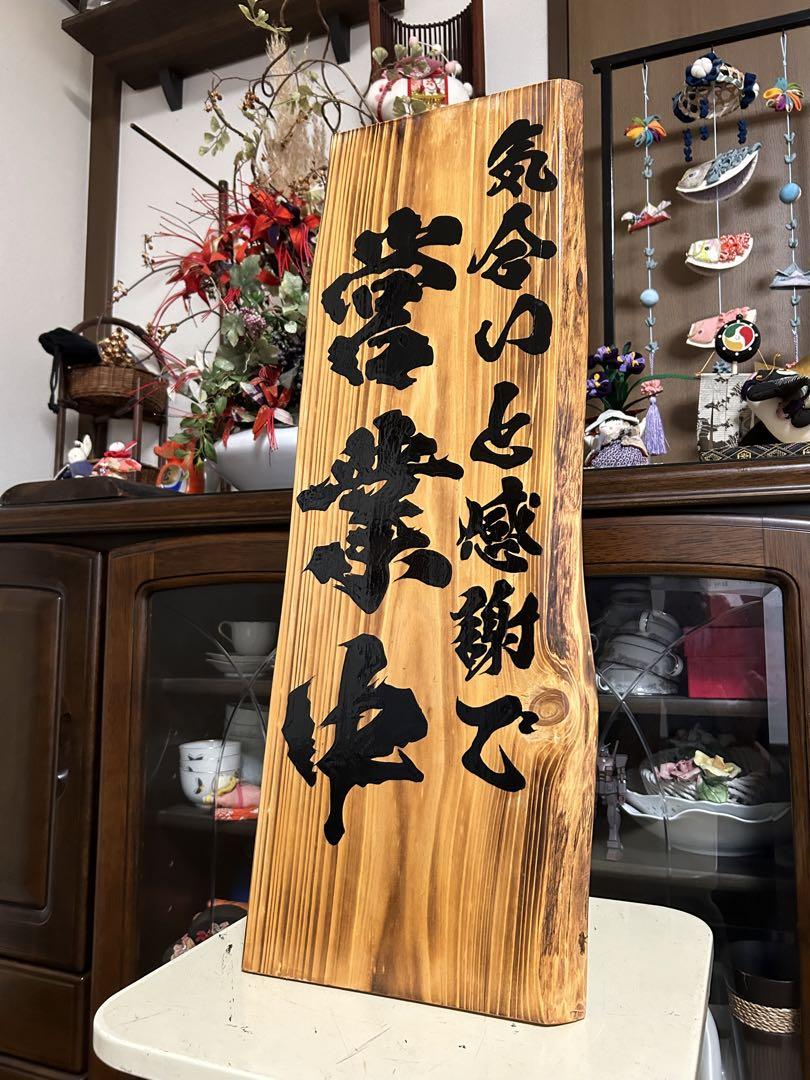 気合いと感謝で
営業中